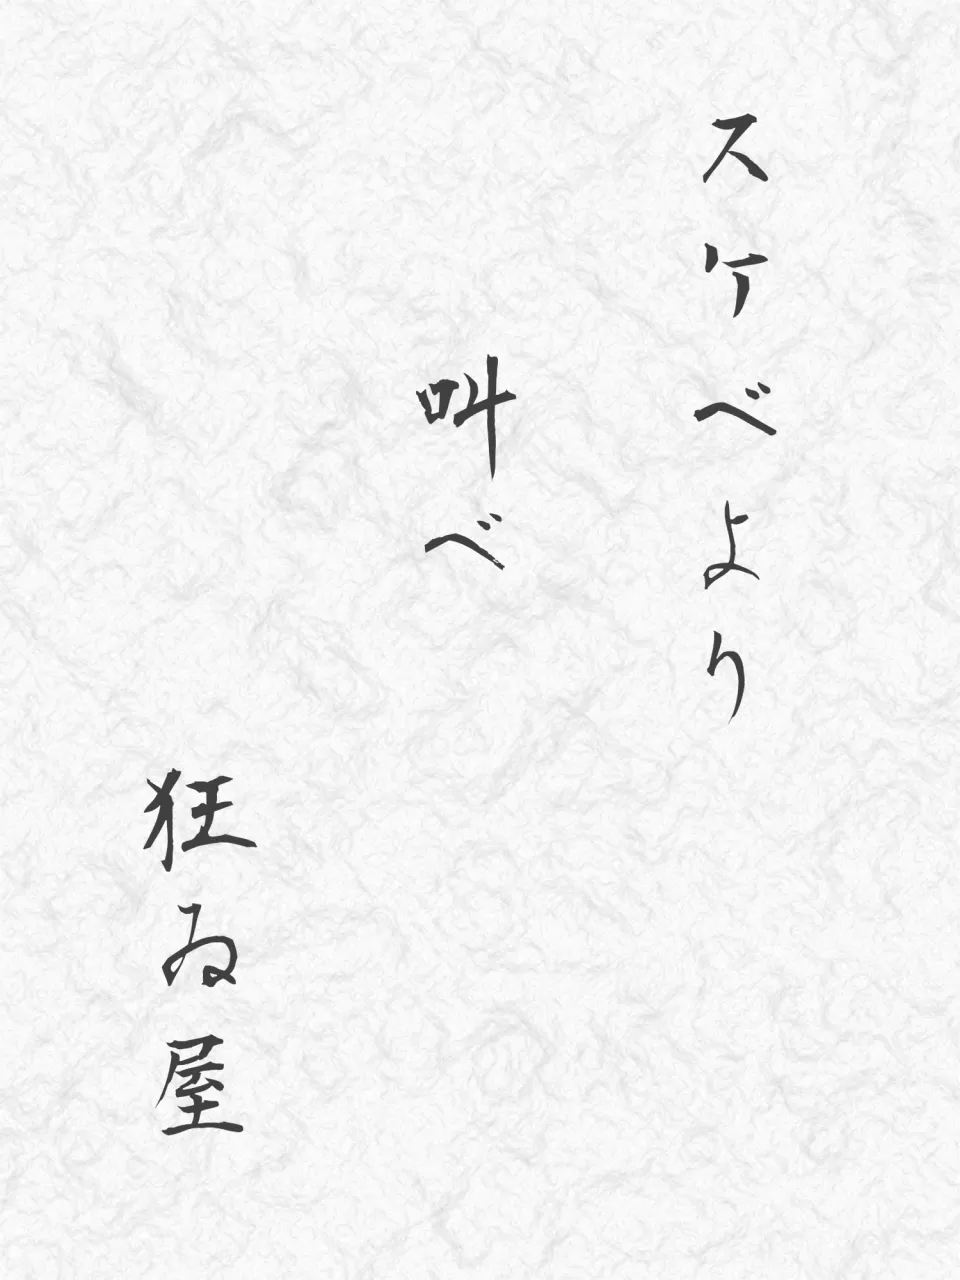 スケベより
叫べ
狂ゐ屋